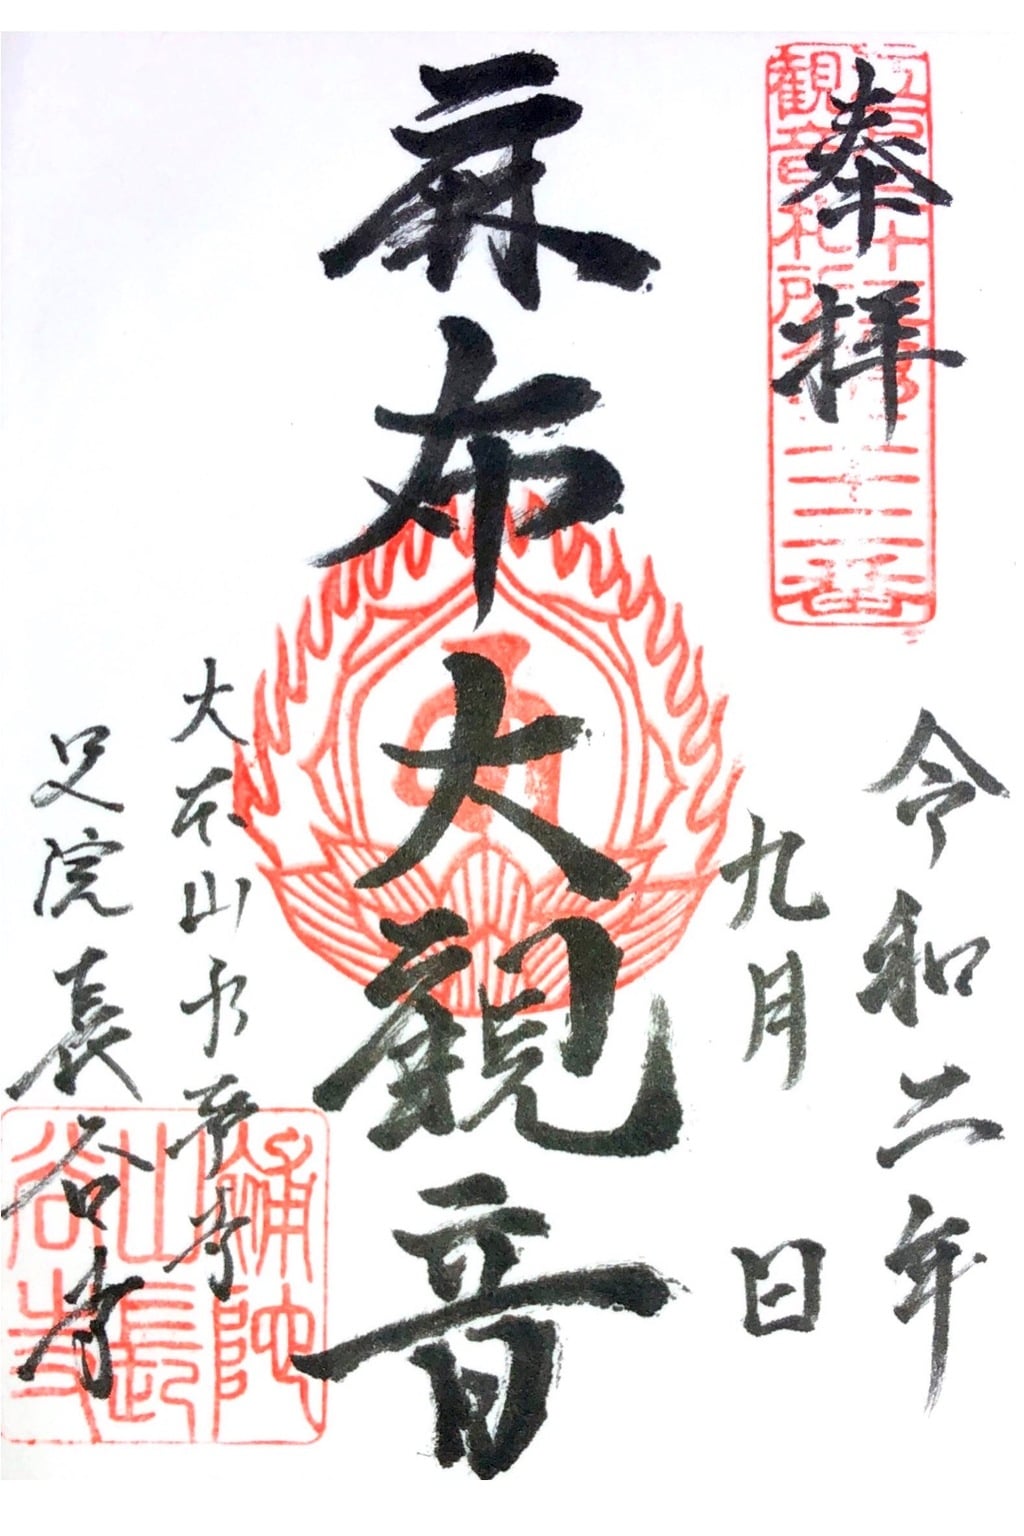 奉拝
観音札所
二十二番
令和二年
九月 日
麻布大観音
大本山永平寺
別院長谷寺
補陀
山長
谷寺